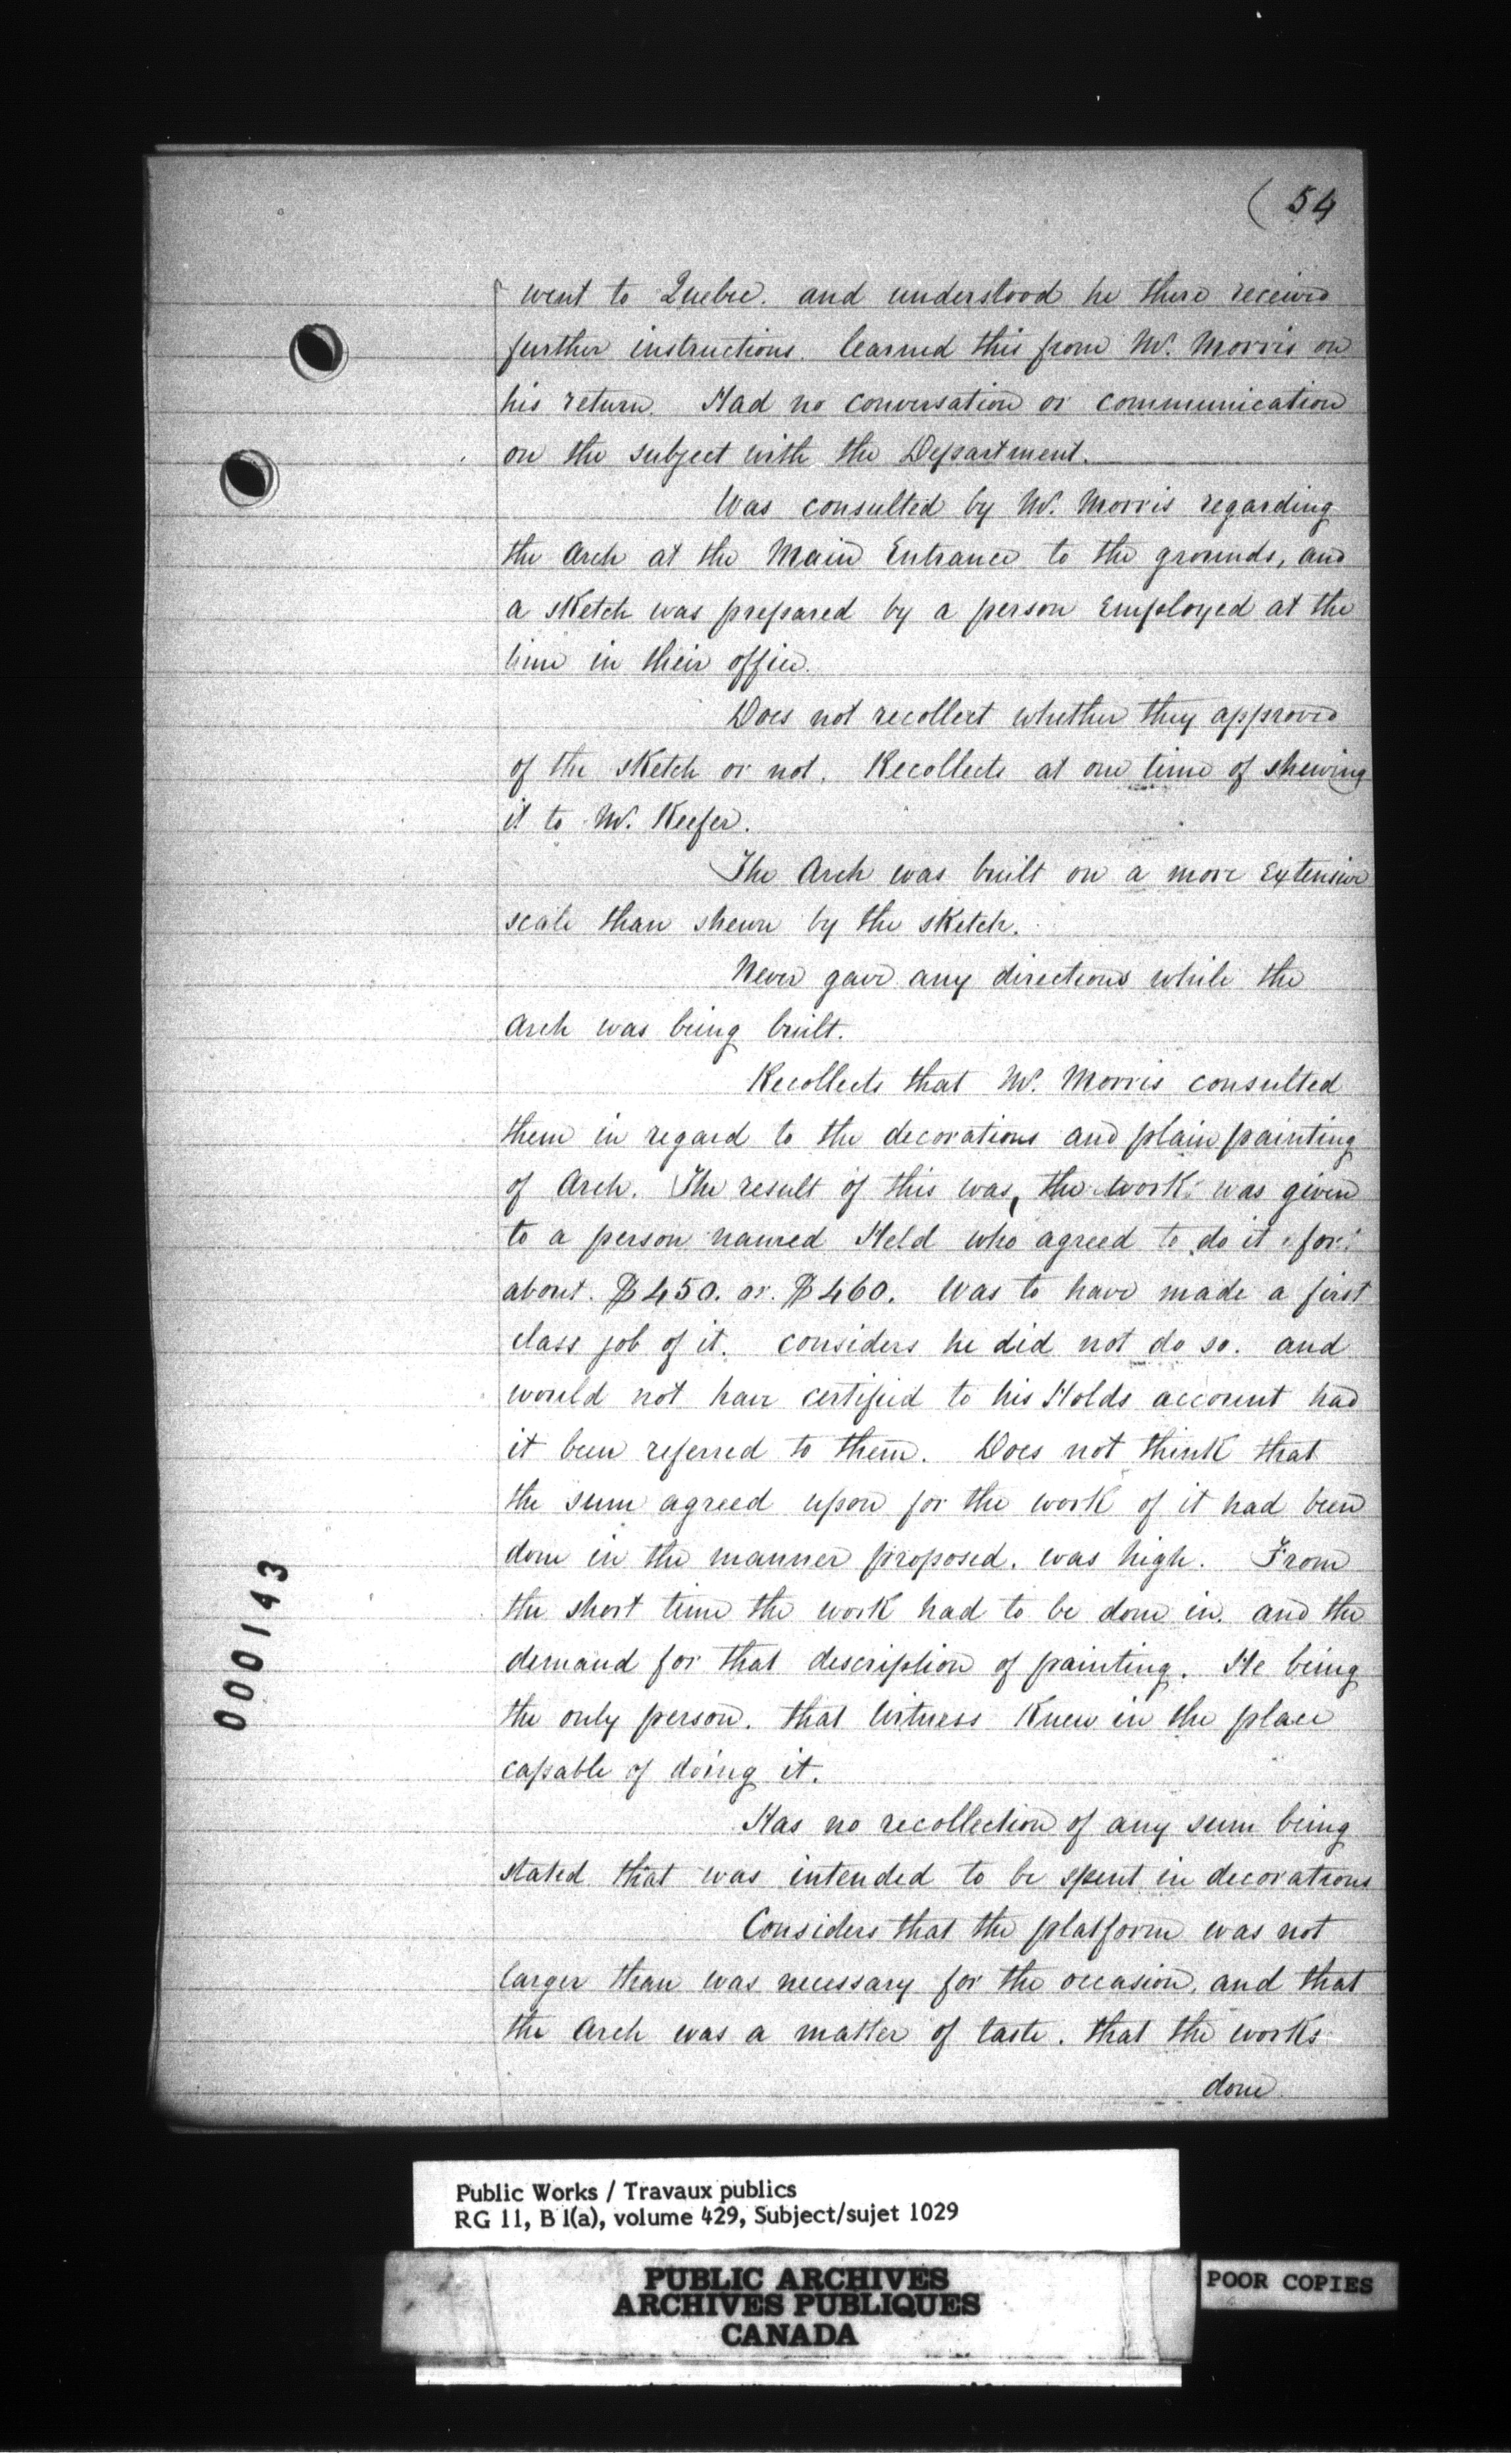 ( 54
went to Quebec. and understood he there received
further instructions. learned this from Mr. Morris on
his return. Had no conversation or communication
on the subject with the Department.
Was consulted by Mr. Morris regarding
the Arch at the Main Entrance to the grounds, and
a sketch was prepared by a person Employed at the
time in their office.
Does not recollect whether they approved
of the sketch or not. Recollects at one time of shewing
it to Mr. Keefer.
The Arch was built on a more Extensive
scale than shewn by the sketch.
Never gave any directions while the
Arch was being built.
Recollects that Mr. Morris consulted
them in regard to the decorations and plain painting
of Arch. The result of this was, the work was given
to a person named Held who agreed to do it for
about. $450. or. $460. Was to have made a first
class job of it. considers he did not do so. and
would not have certified to his Holds account had
it been referred to them. Does not think that
the sum agreed upon for the work of it had been
done in the manner proposed. was high. From
the short time the work had to be done in. and the
demand for that description of painting. He being
the only person. that Witness Knew in the place
capable of doing it.
Has no recollection of any sum being
stated that was intended to be spent in decorations
Considers that the platform was not
larger than was necessary for the occasion. and that
the Arch was a matter of taste. that the works
done
000143
Public Works / Travaux publics
RG 11, B 1(a), volume 429, Subject/sujet 1029
PUBLIC ARCHIVES
ARCHIVES PUBLIQUES
CANADA
POOR COPIES